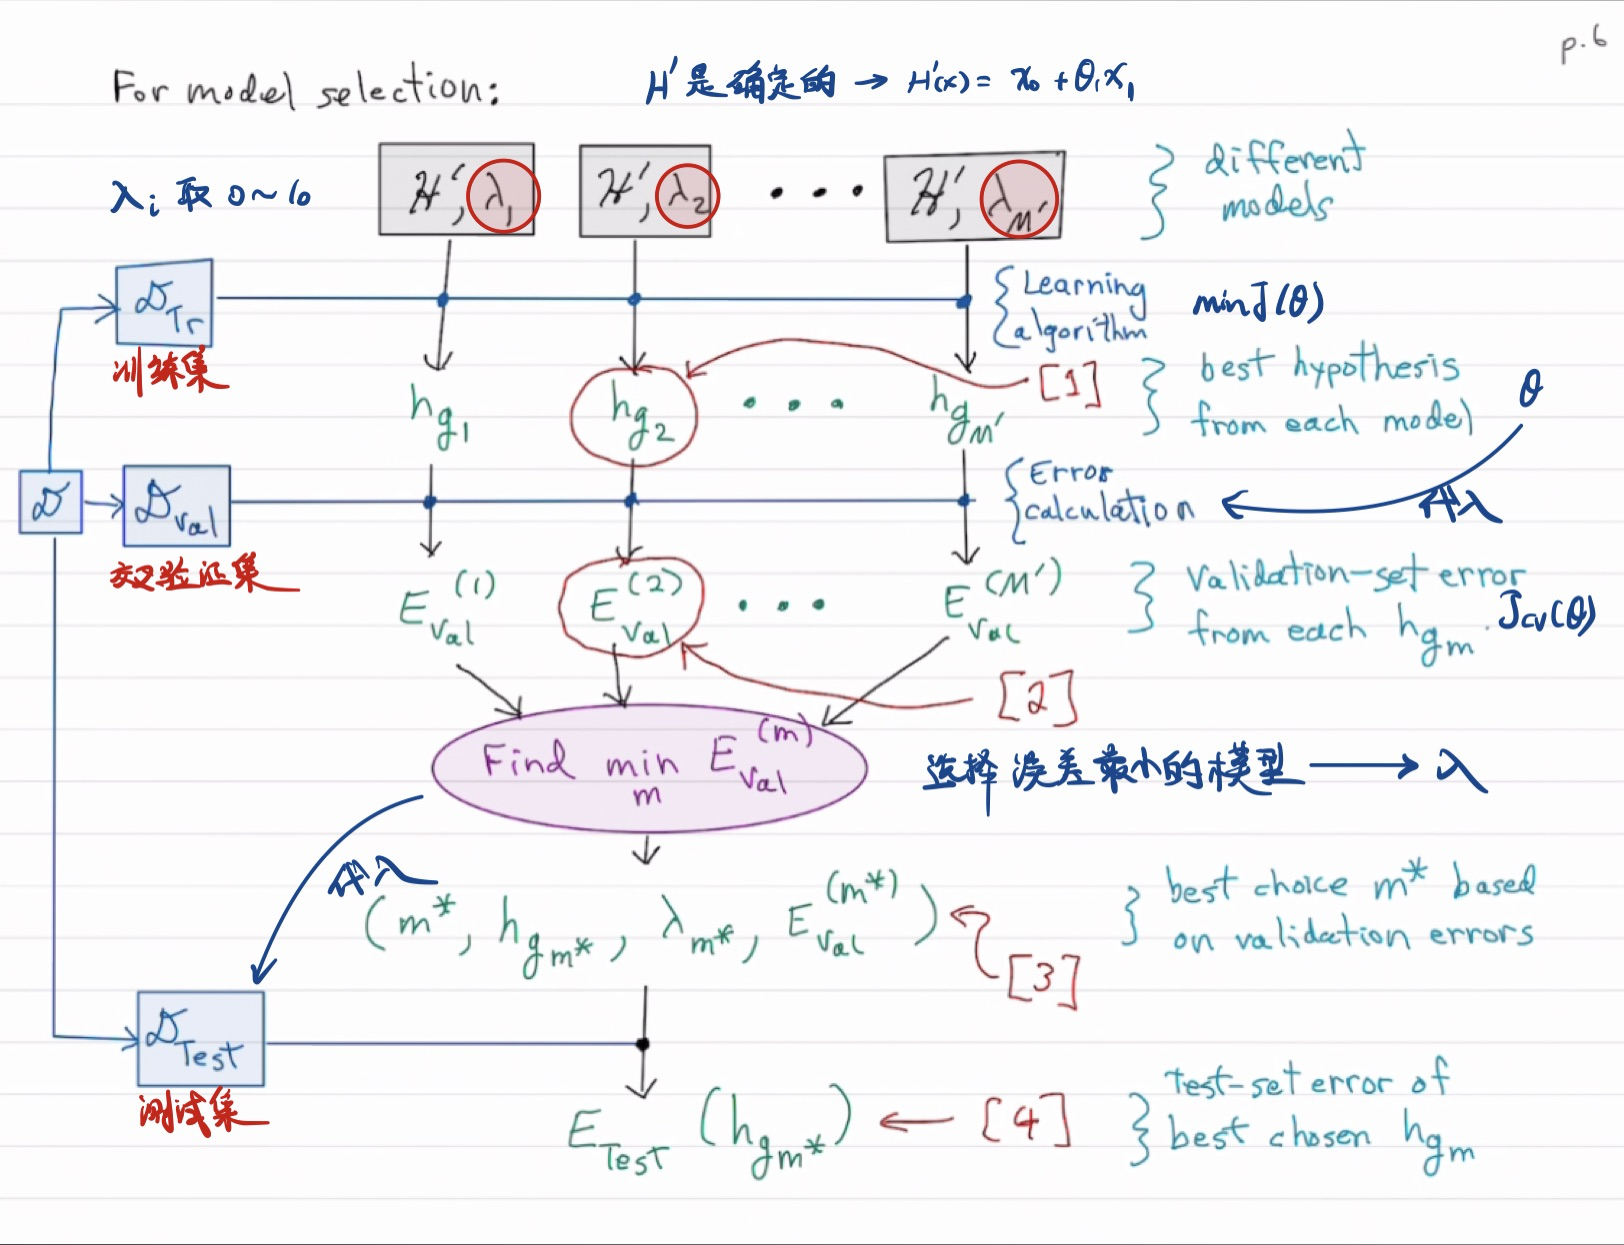 p.6
For model selection:
H'是确定的 → H'(x) = x₀ + θ₁x₁
λᵢ 取 0~10
ℋ', λ₁
ℋ', λ₂
• • •
ℋ', λ_M'
} different
models
𝒟_Tr
训练集
{ Learning
algorithm
min J(θ)
h_g₁
h_g₂
• • •
h_g_M'
[1]
} best hypothesis
from each model
θ
𝒟
𝒟_Val
交叉验证集
{ Error
calculation
代入
E_Val^(1)
E_Val^(2)
• • •
E_Val^(M')
} Validation-set error
from each h_g_m.
J_CV(θ)
[2]
Find min_m E_Val^(m)
选择误差最小的模型 → λ
代入
(m*, h_g_m*, λ_m*, E_Val^(m*))
[3]
} best choice m* based
on validation errors
𝒟_Test
测试集
E_Test (h_g_m*) ← [4]
} Test-set error of
best chosen h_g_m